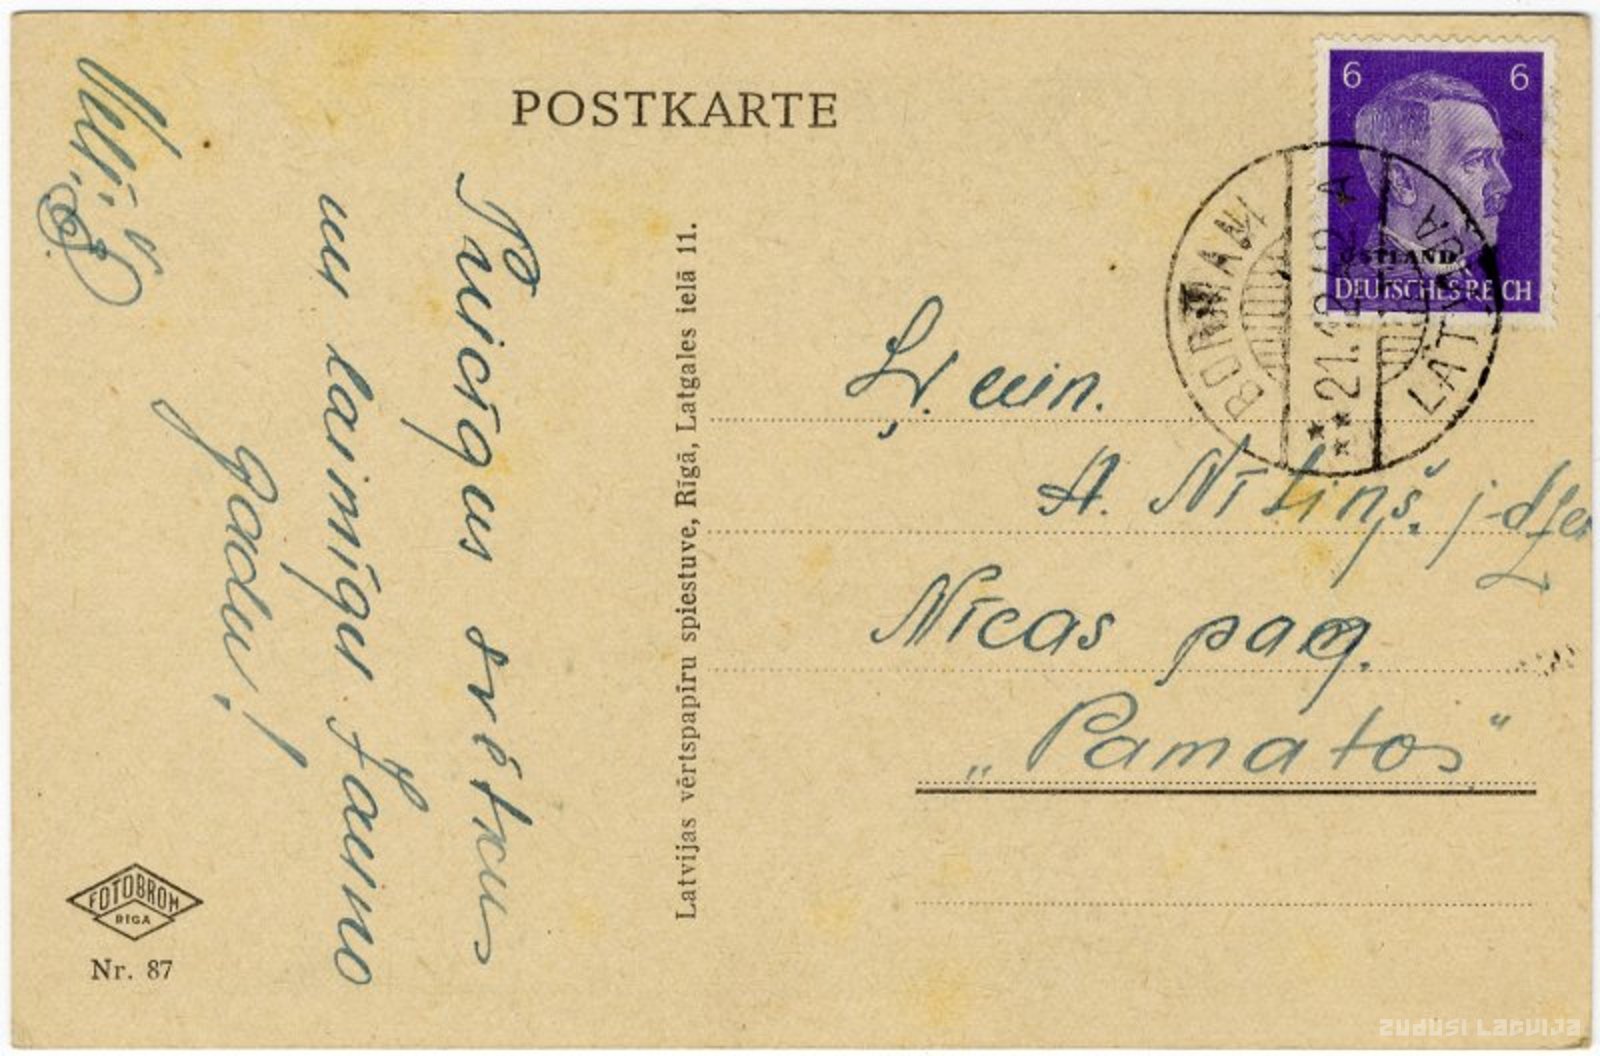 POSTKARTE
6 6
OSTLAND
DEUTSCHES REICH
LATVIJA
21.12.42 A
Priecīgus svētkus
un laimīgu Jauno
gadu!
Latvijas vērtspapīru spiestuve, Rīgā, Latgales ielā 11.
A. Nītiņš. j-dze
Nīcas pag.
„Pamatos"
FOTOBROM
RIGA
Nr. 87
zudusi Latvija